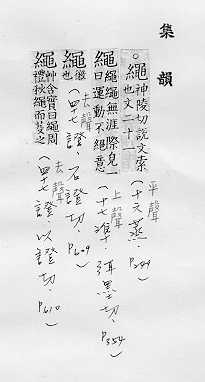 集韻
。繩
神陵切說文索
也文二十一
平聲
(十六蒸.
繩
繩繩無涯際皃一
曰運動不絕意
上聲
(十七準. 弭盡切. P354)
繩
徽
也
去聲
(四十七證. 石證切. P609)
繩
艸含實曰繩周
禮秋繩而芟之
去聲
(四十七證. 以證切. P610)